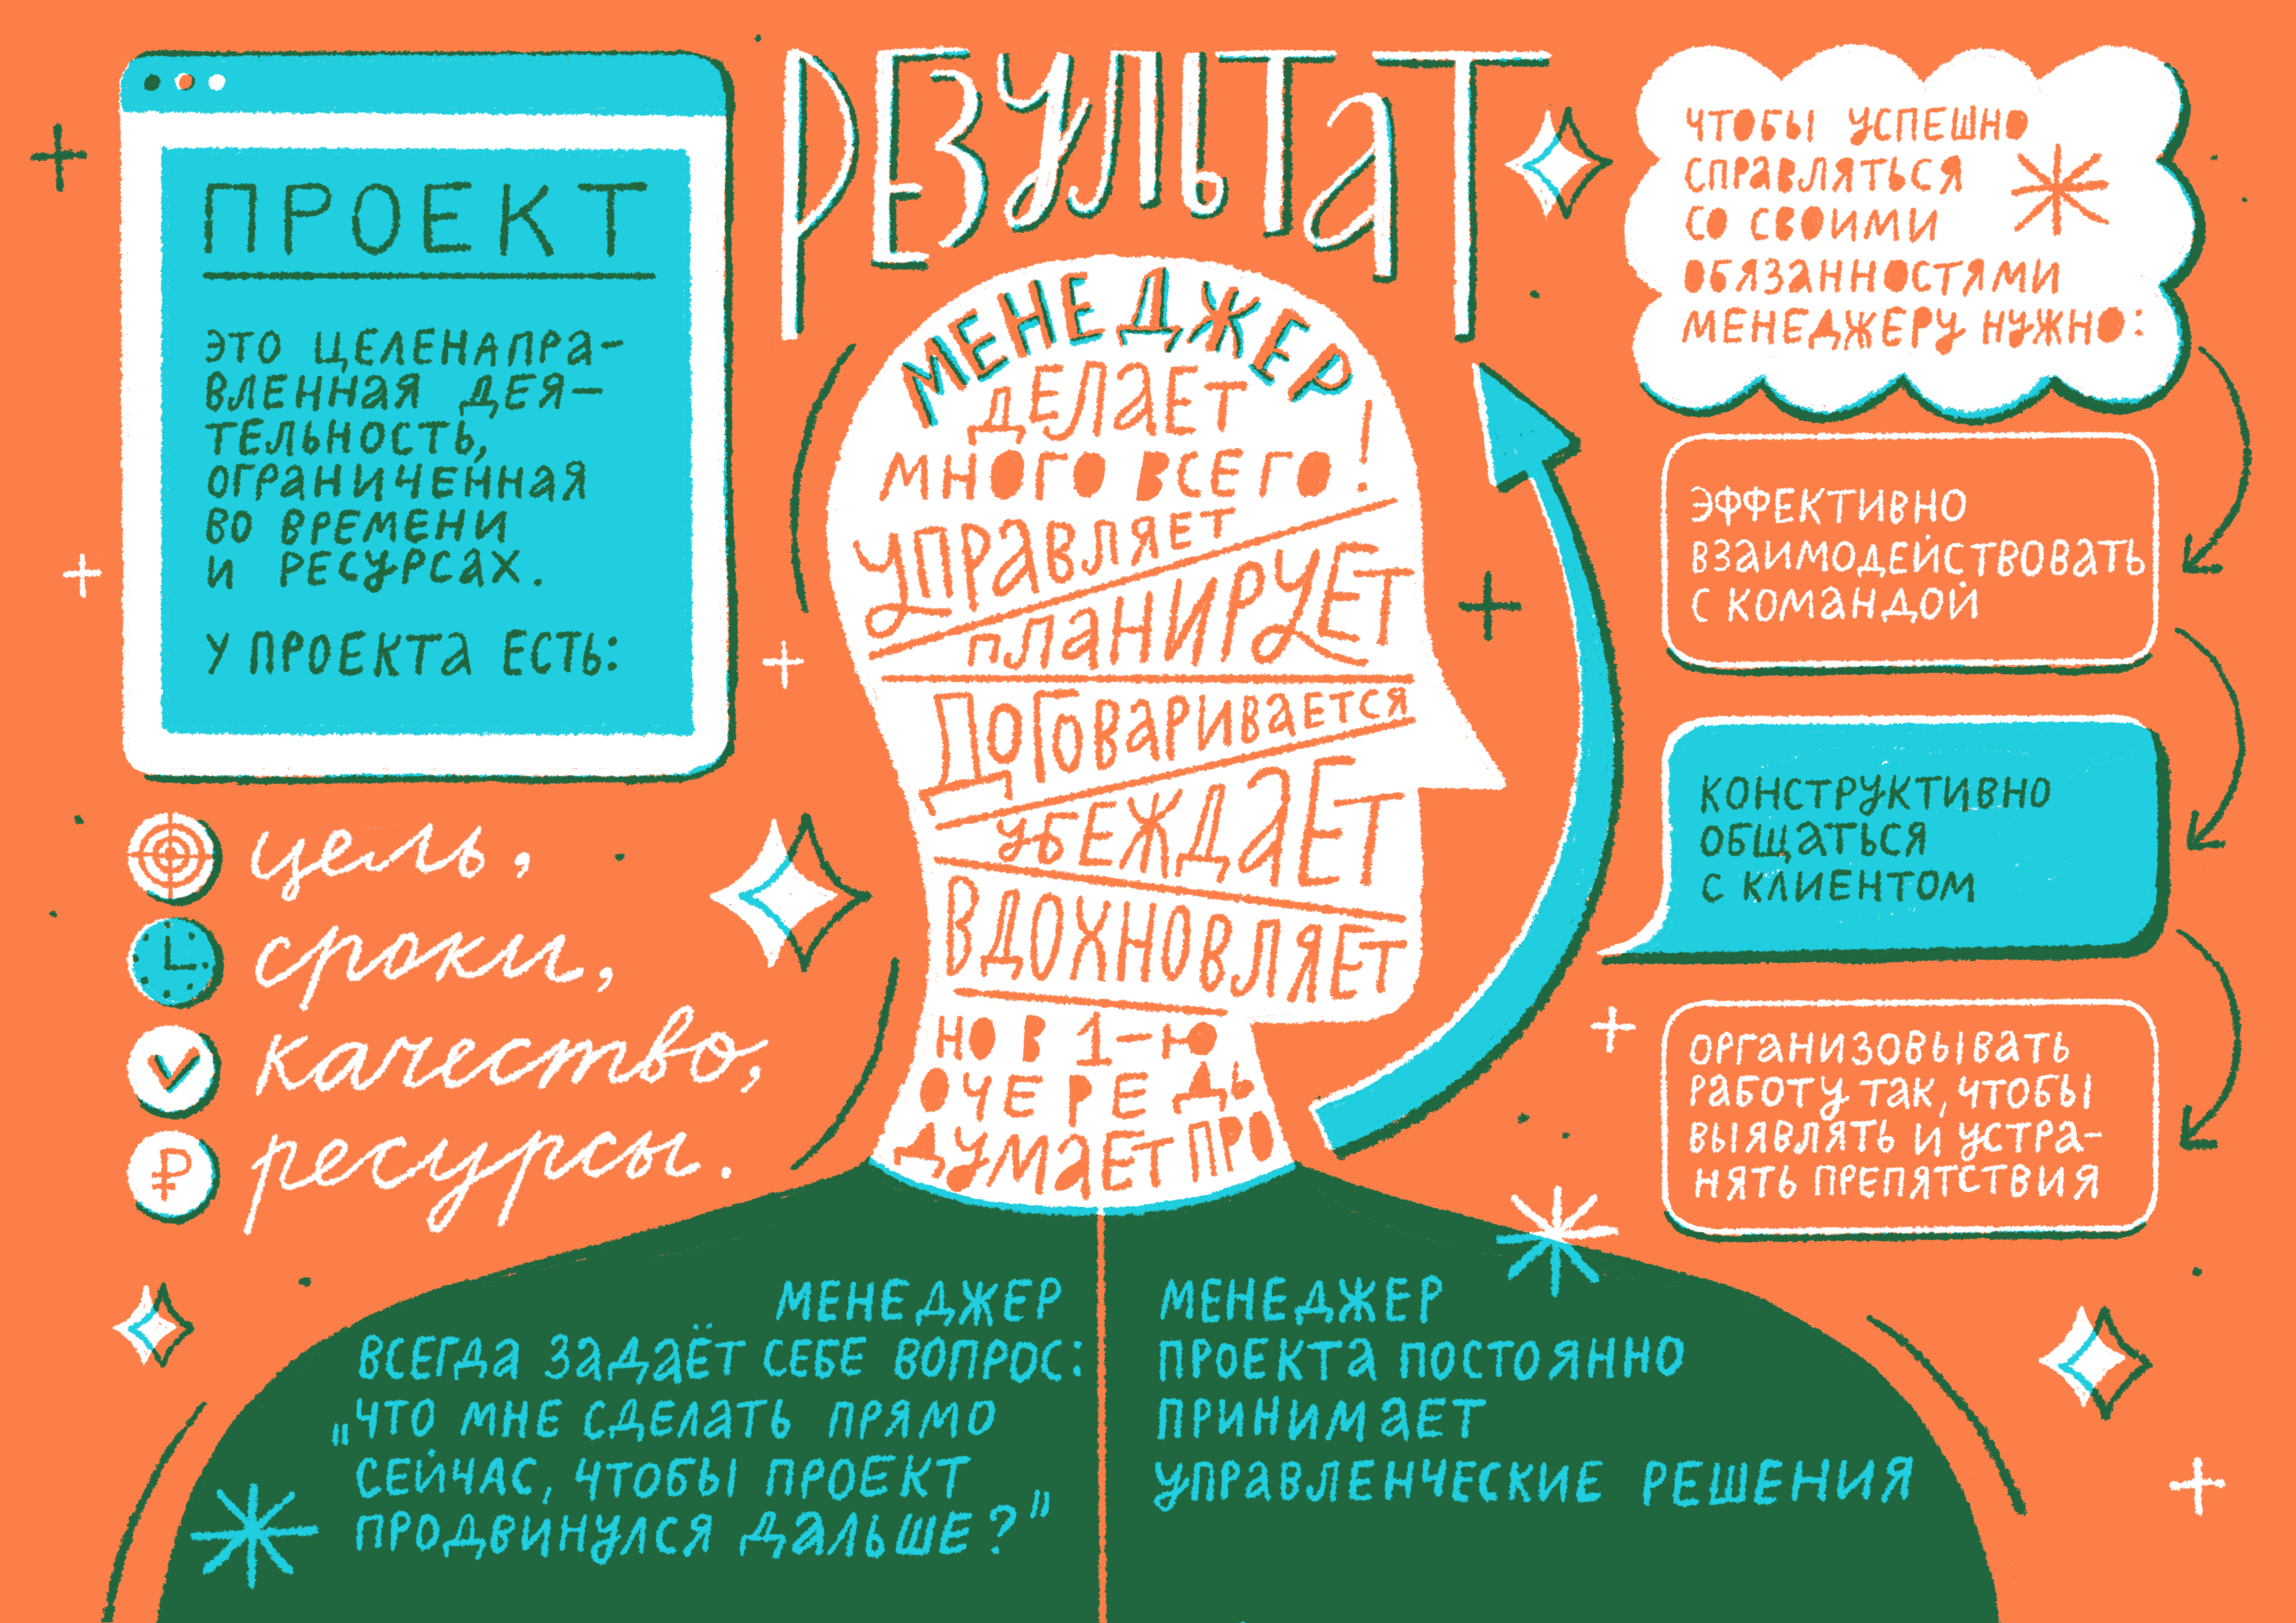 ПРОЕКТ
ЭТО ЦЕЛЕНАПРА-
ВЛЕННАЯ ДЕЯ-
ТЕЛЬНОСТЬ,
ОГРАНИЧЕННАЯ
ВО ВРЕМЕНИ
И РЕСУРСАХ.
У ПРОЕКТА ЕСТЬ:
цель,
сроки,
качество,
₽
ресурсы.
РЕЗУЛЬТАТ
МЕНЕДЖЕР
ДЕЛАЕТ
МНОГО ВСЕГО!
УПРАВЛЯЕТ
ПЛАНИРУЕТ
ДОГОВАРИВАЕТСЯ
УБЕЖДАЕТ
ВДОХНОВЛЯЕТ
НО В 1-Ю
ОЧЕРЕДЬ
ДУМАЕТ ПРО
ЧТОБЫ УСПЕШНО
СПРАВЛЯТЬСЯ
СО СВОИМИ
ОБЯЗАННОСТЯМИ
МЕНЕДЖЕРУ НУЖНО:
ЭФФЕКТИВНО
ВЗАИМОДЕЙСТВОВАТЬ
С КОМАНДОЙ
КОНСТРУКТИВНО
ОБЩАТЬСЯ
С КЛИЕНТОМ
ОРГАНИЗОВЫВАТЬ
РАБОТУ ТАК, ЧТОБЫ
ВЫЯВЛЯТЬ И УСТРА-
НЯТЬ ПРЕПЯТСТВИЯ
МЕНЕДЖЕР
ВСЕГДА ЗАДАЁТ СЕБЕ ВОПРОС:
„ЧТО МНЕ СДЕЛАТЬ ПРЯМО
СЕЙЧАС, ЧТОБЫ ПРОЕКТ
ПРОДВИНУЛСЯ ДАЛЬШЕ?"
МЕНЕДЖЕР
ПРОЕКТА ПОСТОЯННО
ПРИНИМАЕТ
УПРАВЛЕНЧЕСКИЕ РЕШЕНИЯ